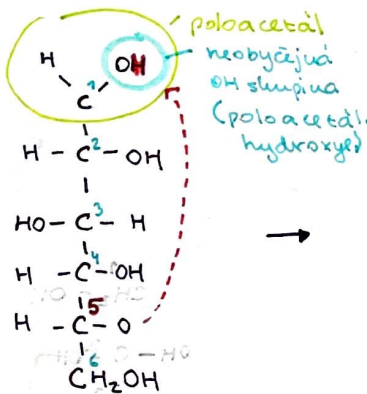 poloacetál
neobyčejná
OH skupina
(poloacetál.
hydroxyl)
H OH
C 1
H - C 2 - OH
HO - C 3 - H
H - C 4 - OH
H - C 5 - O
6
CH2OH